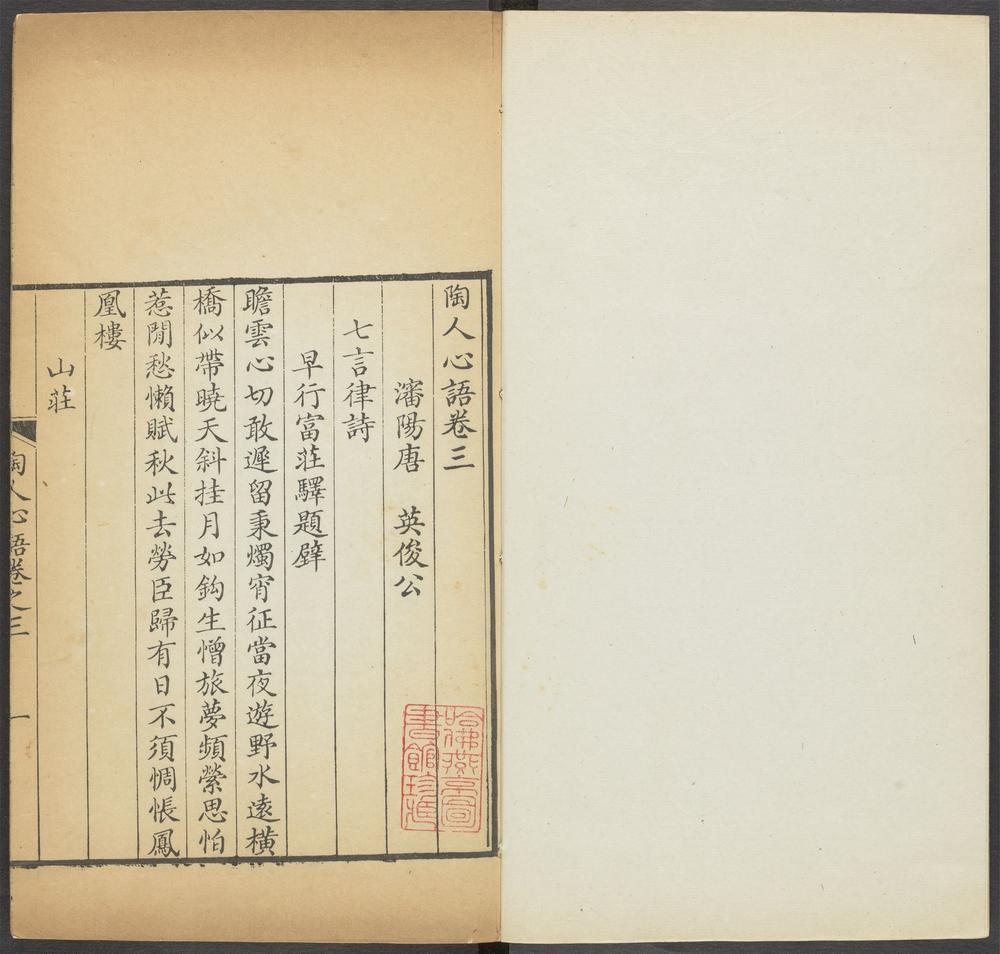 陶人心語卷三
瀋陽唐　英俊公
七言律詩
早行富莊驛題壁
瞻雲心切敢遲留秉燭宵征當夜遊野水遠橫
橋似帶曉天斜挂月如鈎生憎旅夢頻縈思怕
惹閒愁懶賦秋此去勞臣歸有日不須惆悵鳳
凰樓
山莊
陶人心語卷之三
一
哈佛燕京圖
書館珍藏